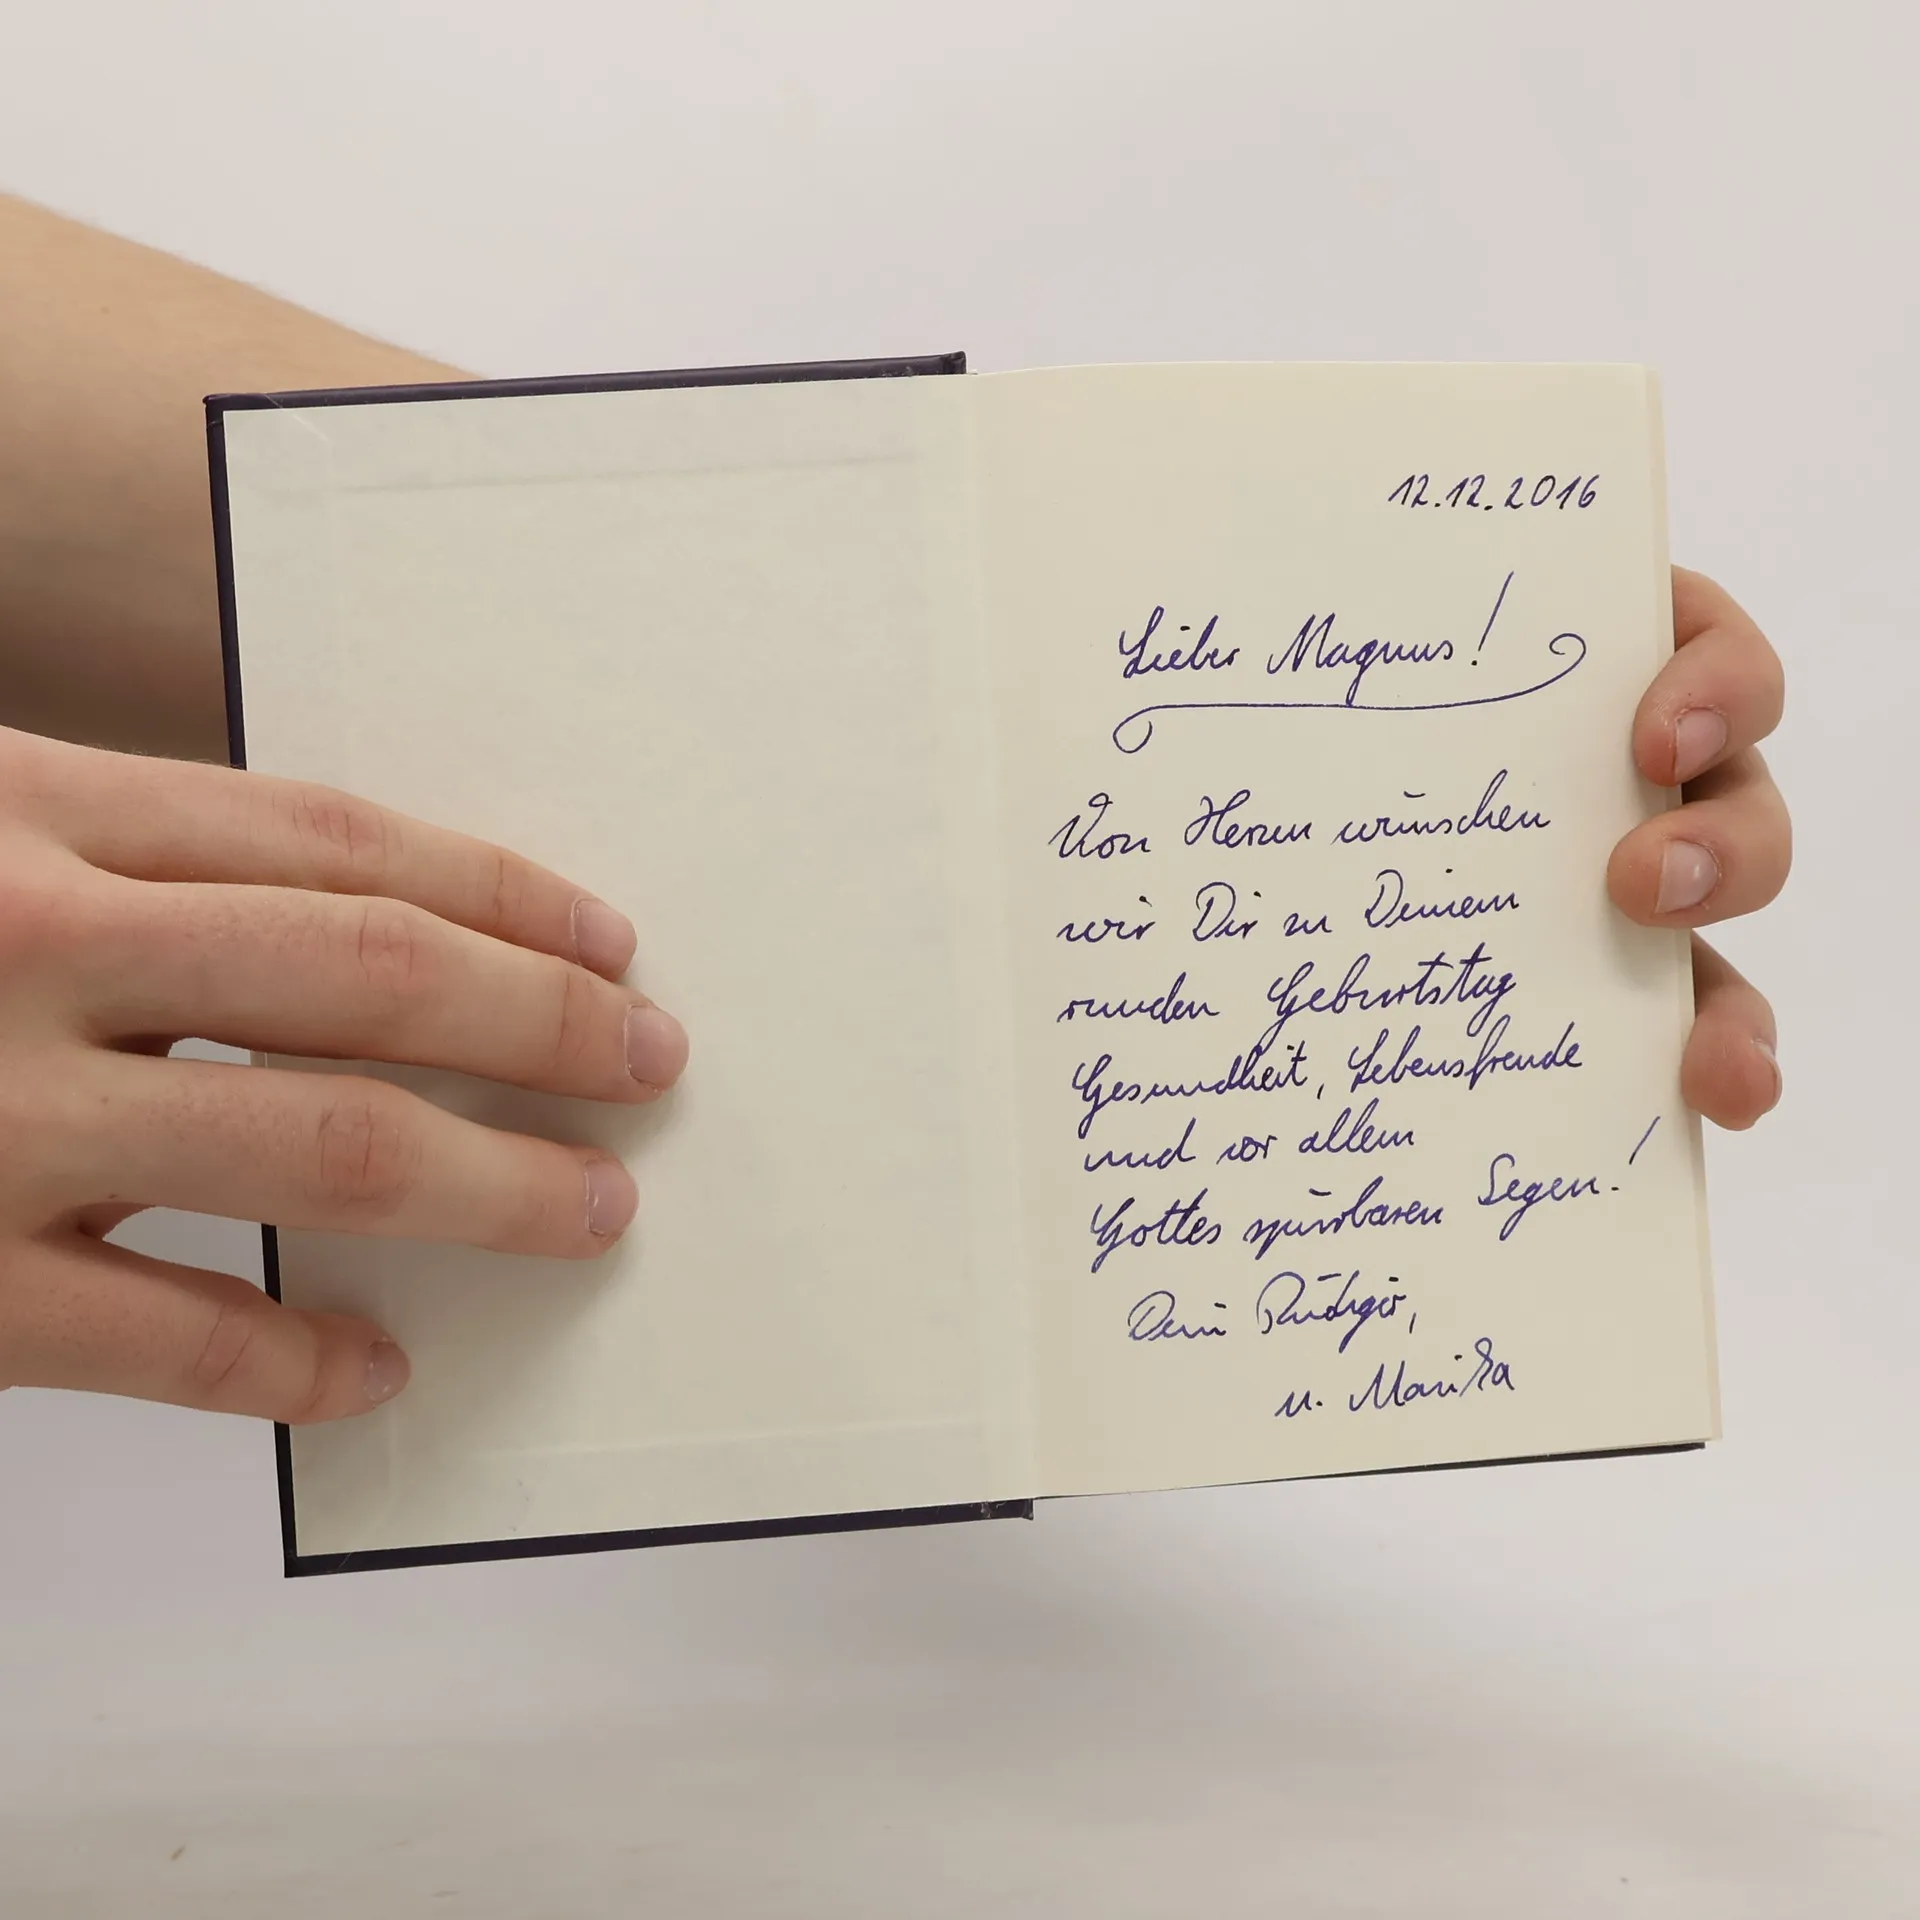 12.12.2016
Lieber Magnus!
Von Herzen wünschen
wir Dir zu Deinem
runden Geburtstag
Gesundheit, Lebensfreude
und vor allem
Gottes spürbaren Segen!
Dein Rüdiger,
u. Marika